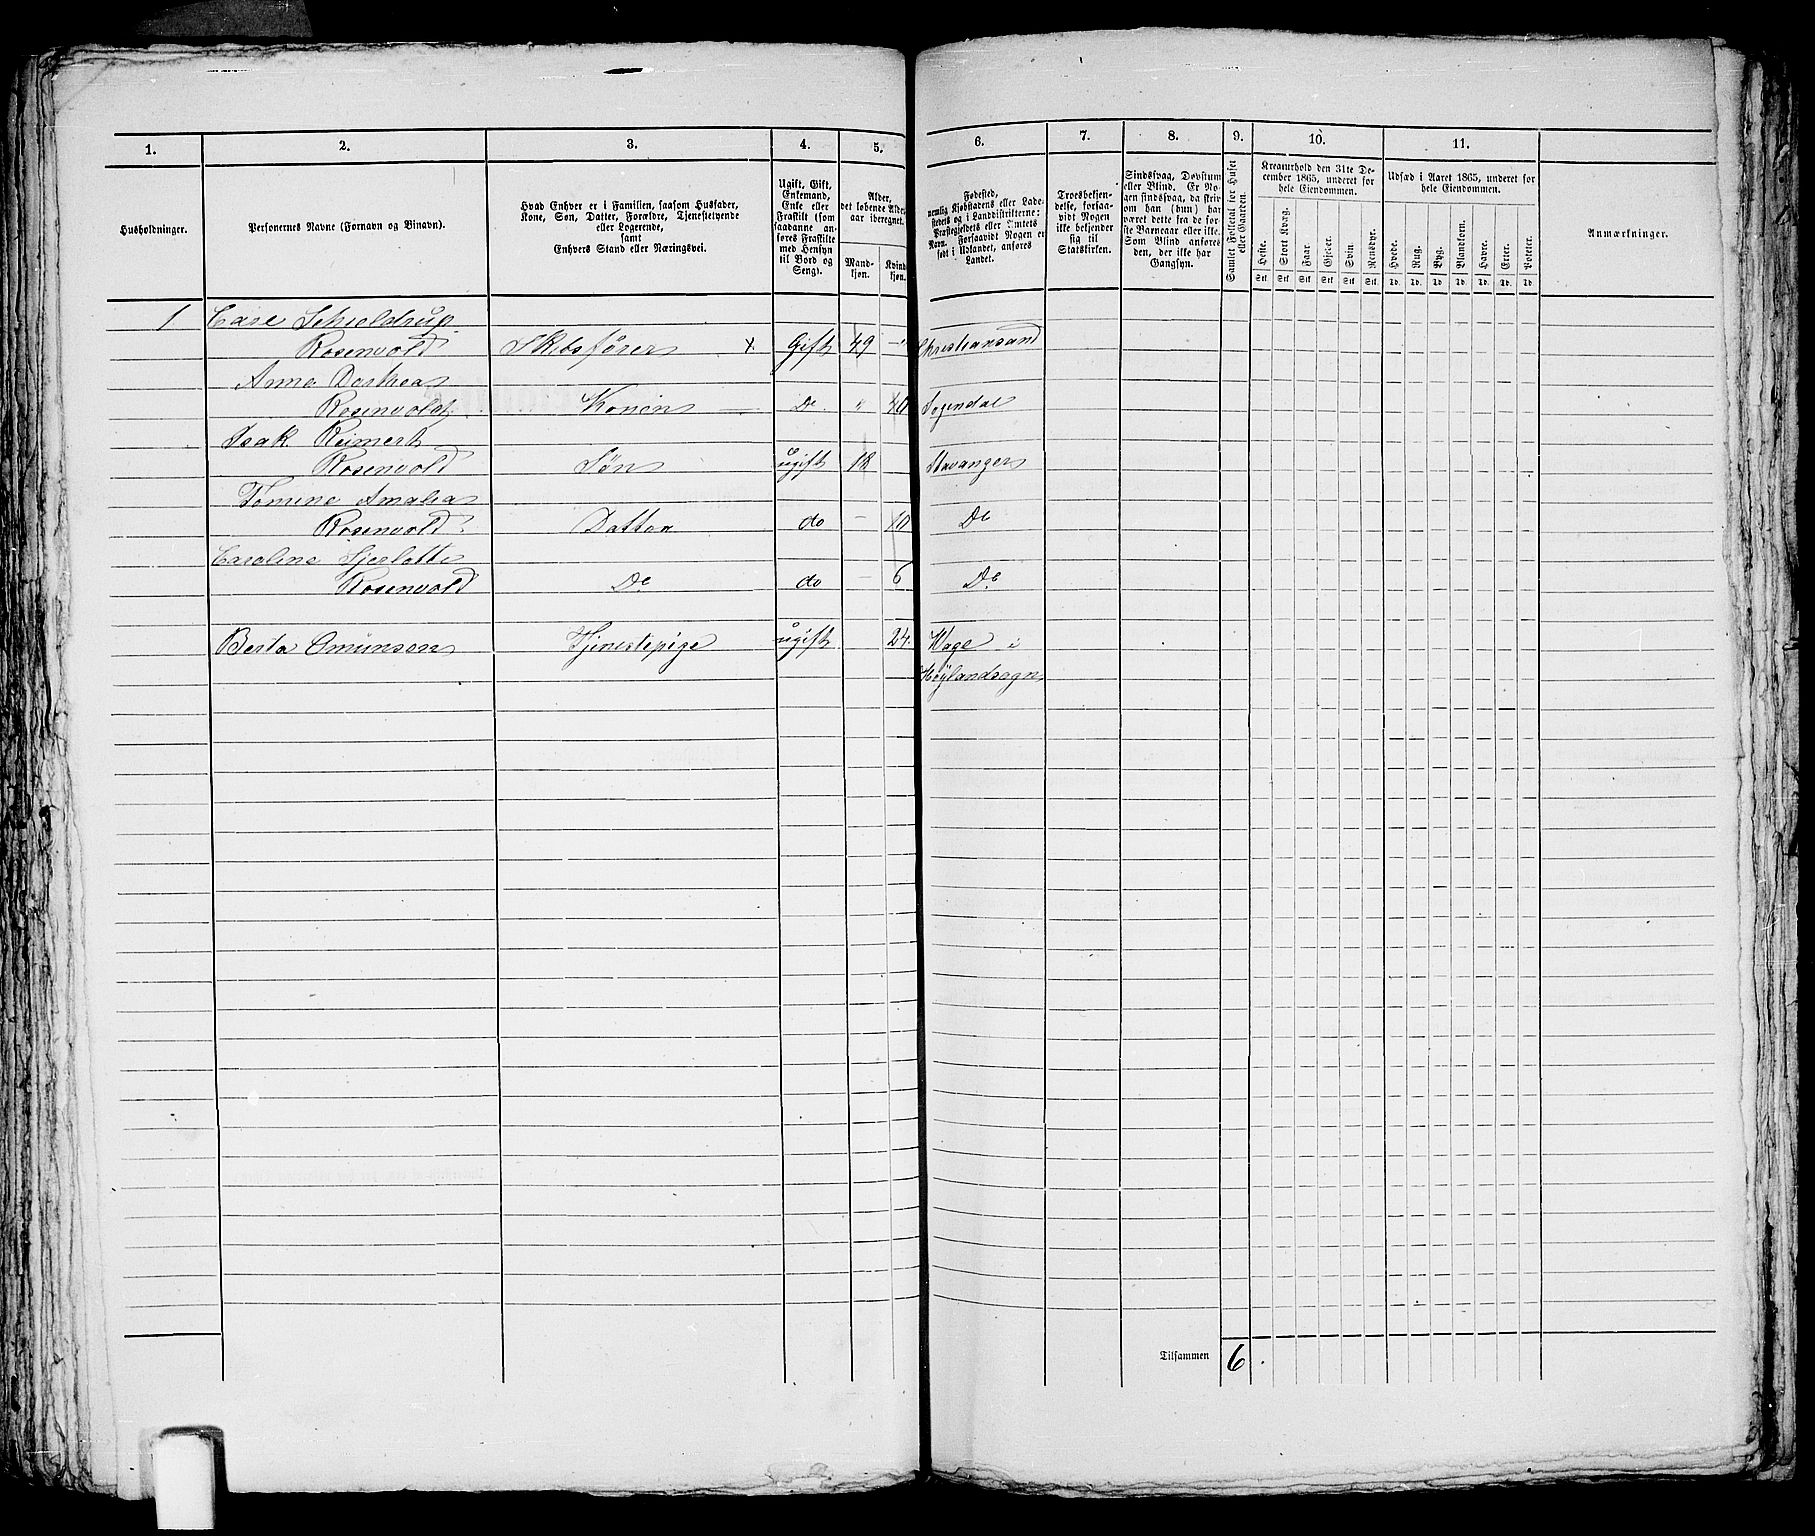 1. 2. 3. 4. 5. 6. 7. 8. 9. 10. 11.
Husholdninger.
Personernes Navne (Fornavn og Binavn).
Hvad Enhver er i Familien, saasom Husfader,
Kone, Søn, Datter, Forældre, Tjenestetyende
eller Logerende,
samt
Enhvers Stand eller Næringsvei.
Ugift, Gift,
Enkemand,
Enke eller
Fraskilt (som
saadanne an-
føres Fraskilte
med Hensyn
til Bord og
Seng).
Alder,
det løbende Alders-
aar iberegnet.
Mand-
kjøn.
Kvind-
kjøn.
Fødested,
nemlig Kjøbstadens eller Lade-
stedets og i Landdistrikterne:
Præstegjeldets eller Amtets
Navn. Forsaavidt Nogen er
født i Udlandet, anføres
Landet.
Troesbekjen-
delse, forsaa-
vidt Nogen
ikke bekjender
sig til
Statskirken.
Sindssvag, Døvstum
eller Blind. Er No-
gen sindssvag, da skri-
ves om han (hun) har
været dette fra de før-
ste Barneaar eller ikke.
Som Blind anføres
den, der ikke har
Gangsyn.
Samlet Folketal for Huset
eller Gaarden.
Kreaturhold den 31te De-
cember 1865, underet for
hele Eiendommen.
Heste. Stort Kvæg. Faar. Gjeder. Svin. Rensdyr.
Stk Stk Stk Stk Stk Stk
Udsæd i Aaret 1865, underet for
hele Eiendommen.
Hvede. Rug. Byg. Blandkorn. Havre. Erter. Poteter.
Td. Td. Td Td. Td. Td. Td
Anmærkninger.
1 Carl Schieldrup
Rosenvold Skibsfører X Gift 49 -"- Christiansand
Anne Dorthea
Rosenvold Konen De " 40 Sogendal
Isak Reimert
Rosenvold Søn ugift 12 Stavanger
Tomine Amalia
Rosenvold Datter do - 10 De
Caroline Sjerlotte
Rosenvold De do - 6 De
Berta Omunsen Tjenestepige ugift 24. Hage i
Høylandsogn
Tilsammen 6